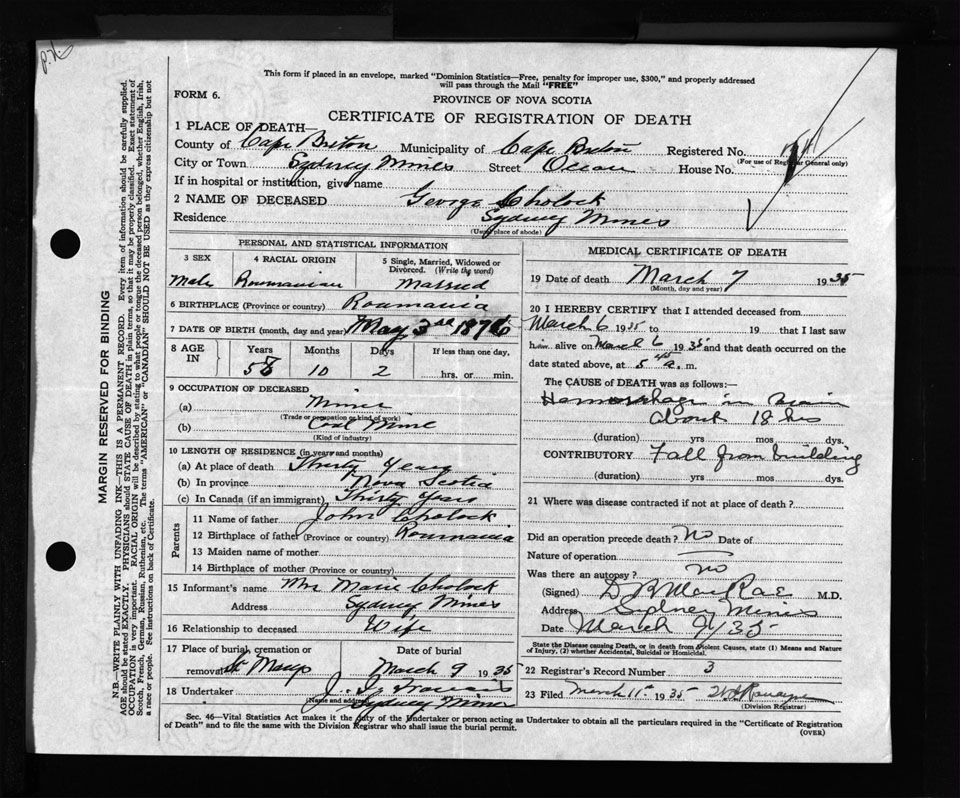 This form if placed in an envelope, marked "Dominion Statistics—Free, penalty for improper use, $300," and properly addressed
will pass through the Mail "FREE"
FORM 6.
PROVINCE OF NOVA SCOTIA
CERTIFICATE OF REGISTRATION OF DEATH
1 PLACE OF DEATH—
County of Cape Breton Municipality of Cape Breton Registered No.
(For use of Registrar General only)
City or Town Sydney Mines Street Ocean House No.
If in hospital or institution, give name
2 NAME OF DECEASED George Cholock
Residence Sydney Mines
(Usual place of abode)
PERSONAL AND STATISTICAL INFORMATION
3 SEX 4 RACIAL ORIGIN 5 Single, Married, Widowed or
Divorced. (Write the word)
Male Roumanian Married
6 BIRTHPLACE (Province or country) Roumania
7 DATE OF BIRTH (month, day and year) May 3rd 1876
8 AGE IN Years Months Days If less than one day,
58 10 2 hrs. or min.
9 OCCUPATION OF DECEASED
(a) Miner
(Trade or occupation or kind of work)
(b) Coal Mine
(Kind of industry)
10 LENGTH OF RESIDENCE (in years and months)
(a) At place of death Thirty Years
(b) In province Nova Scotia
(c) In Canada (if an immigrant) Thirty Years
Parents
11 Name of father John Cholock
12 Birthplace of father (Province or country) Roumania
13 Maiden name of mother
14 Birthplace of mother (Province or country)
15 Informant's name Mrs Marie Cholock
Address Sydney Mines
16 Relationship to deceased Wife
17 Place of burial, cremation or Date of burial
removal St Marys March 9 1935
18 Undertaker J.
(Name and address) Sydney Mines
MEDICAL CERTIFICATE OF DEATH
19 Date of death March 7 1935
(Month, day and year)
20 I HEREBY CERTIFY that I attended deceased from
March 6 1935 to 19 that I last saw
him alive on March 6 1935 and that death occurred on the
date stated above, at 5 45 a. m.
The CAUSE of DEATH was as follows:
Hemorrhage in brain
about 18 hrs
(duration) yrs mos dys.
CONTRIBUTORY Fall from building
(duration) yrs mos dys.
21 Where was disease contracted if not at place of death?
Did an operation precede death? No Date of
Nature of operation
Was there an autopsy? no
(Signed) D R MacRae M.D.
Address Sydney Mines
Date March 9/35
State the Disease causing Death, or in death from Violent Causes, state (1) Means and Nature
of Injury, (2) whether Accidental, Suicidal or Homicidal.
22 Registrar's Record Number 3
23 Filed March 11th 1935
(Division Registrar)
Sec. 46—Vital Statistics Act makes it the duty of the Undertaker or person acting as Undertaker to obtain all the particulars required in the "Certificate of Registration
of Death" and to file the same with the Division Registrar who shall issue the burial permit.
(OVER)
MARGIN RESERVED FOR BINDING
N.B.—WRITE PLAINLY WITH UNFADING INK—THIS IS A PERMANENT RECORD. Every item of information should be carefully supplied.
AGE should be stated EXACTLY. PHYSICIANS should STATE CAUSE OF DEATH in plain terms, so that it may be properly classified. Exact statement of
OCCUPATION is very important. RACIAL ORIGIN will be described by stating to what people or tongue the deceased person belonged, whether English, Irish,
Scotch, French, German, Russian, Ruthenian, etc. The terms "AMERICAN" or "CANADIAN" SHOULD NOT BE USED as they express citizenship but not
a race or people. See instructions on back of Certificate.